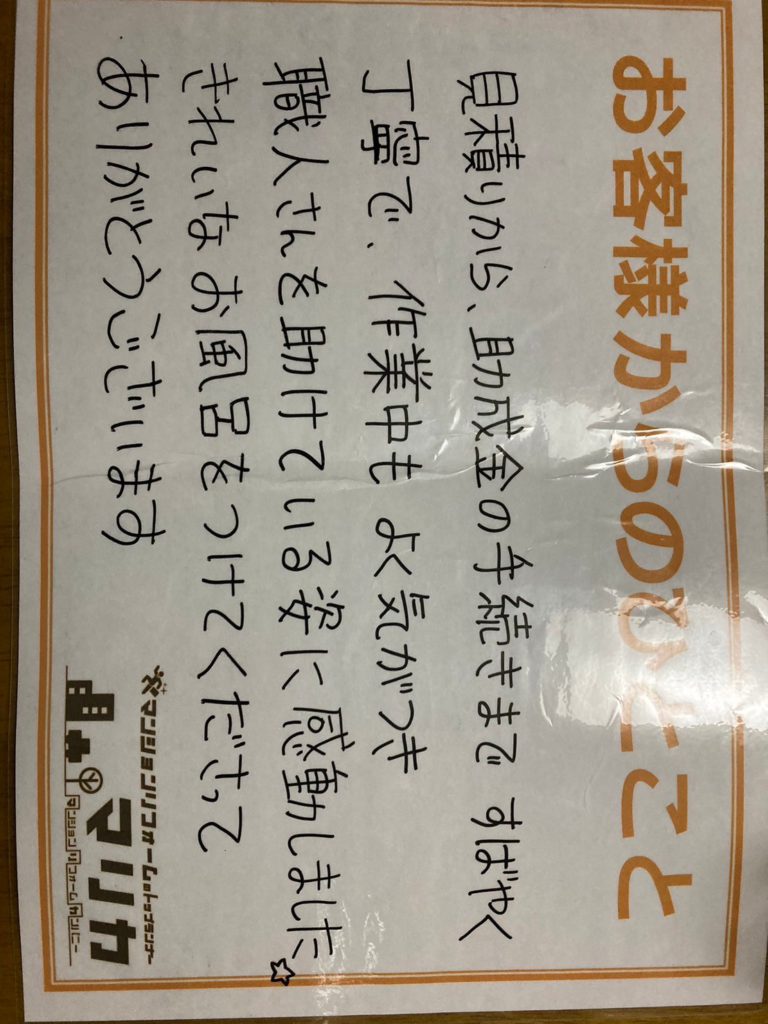 お客様からのひとこと
見積りから、助成金の手続きまで すばやく
丁寧で、作業中も よく気がつき
職人さんを助けている姿に感動しました☆
きれいなお風呂をつけてくださって
ありがとうございます
マンションリフォームのトップランナー
マリカ
マンションリフォームカンパニー